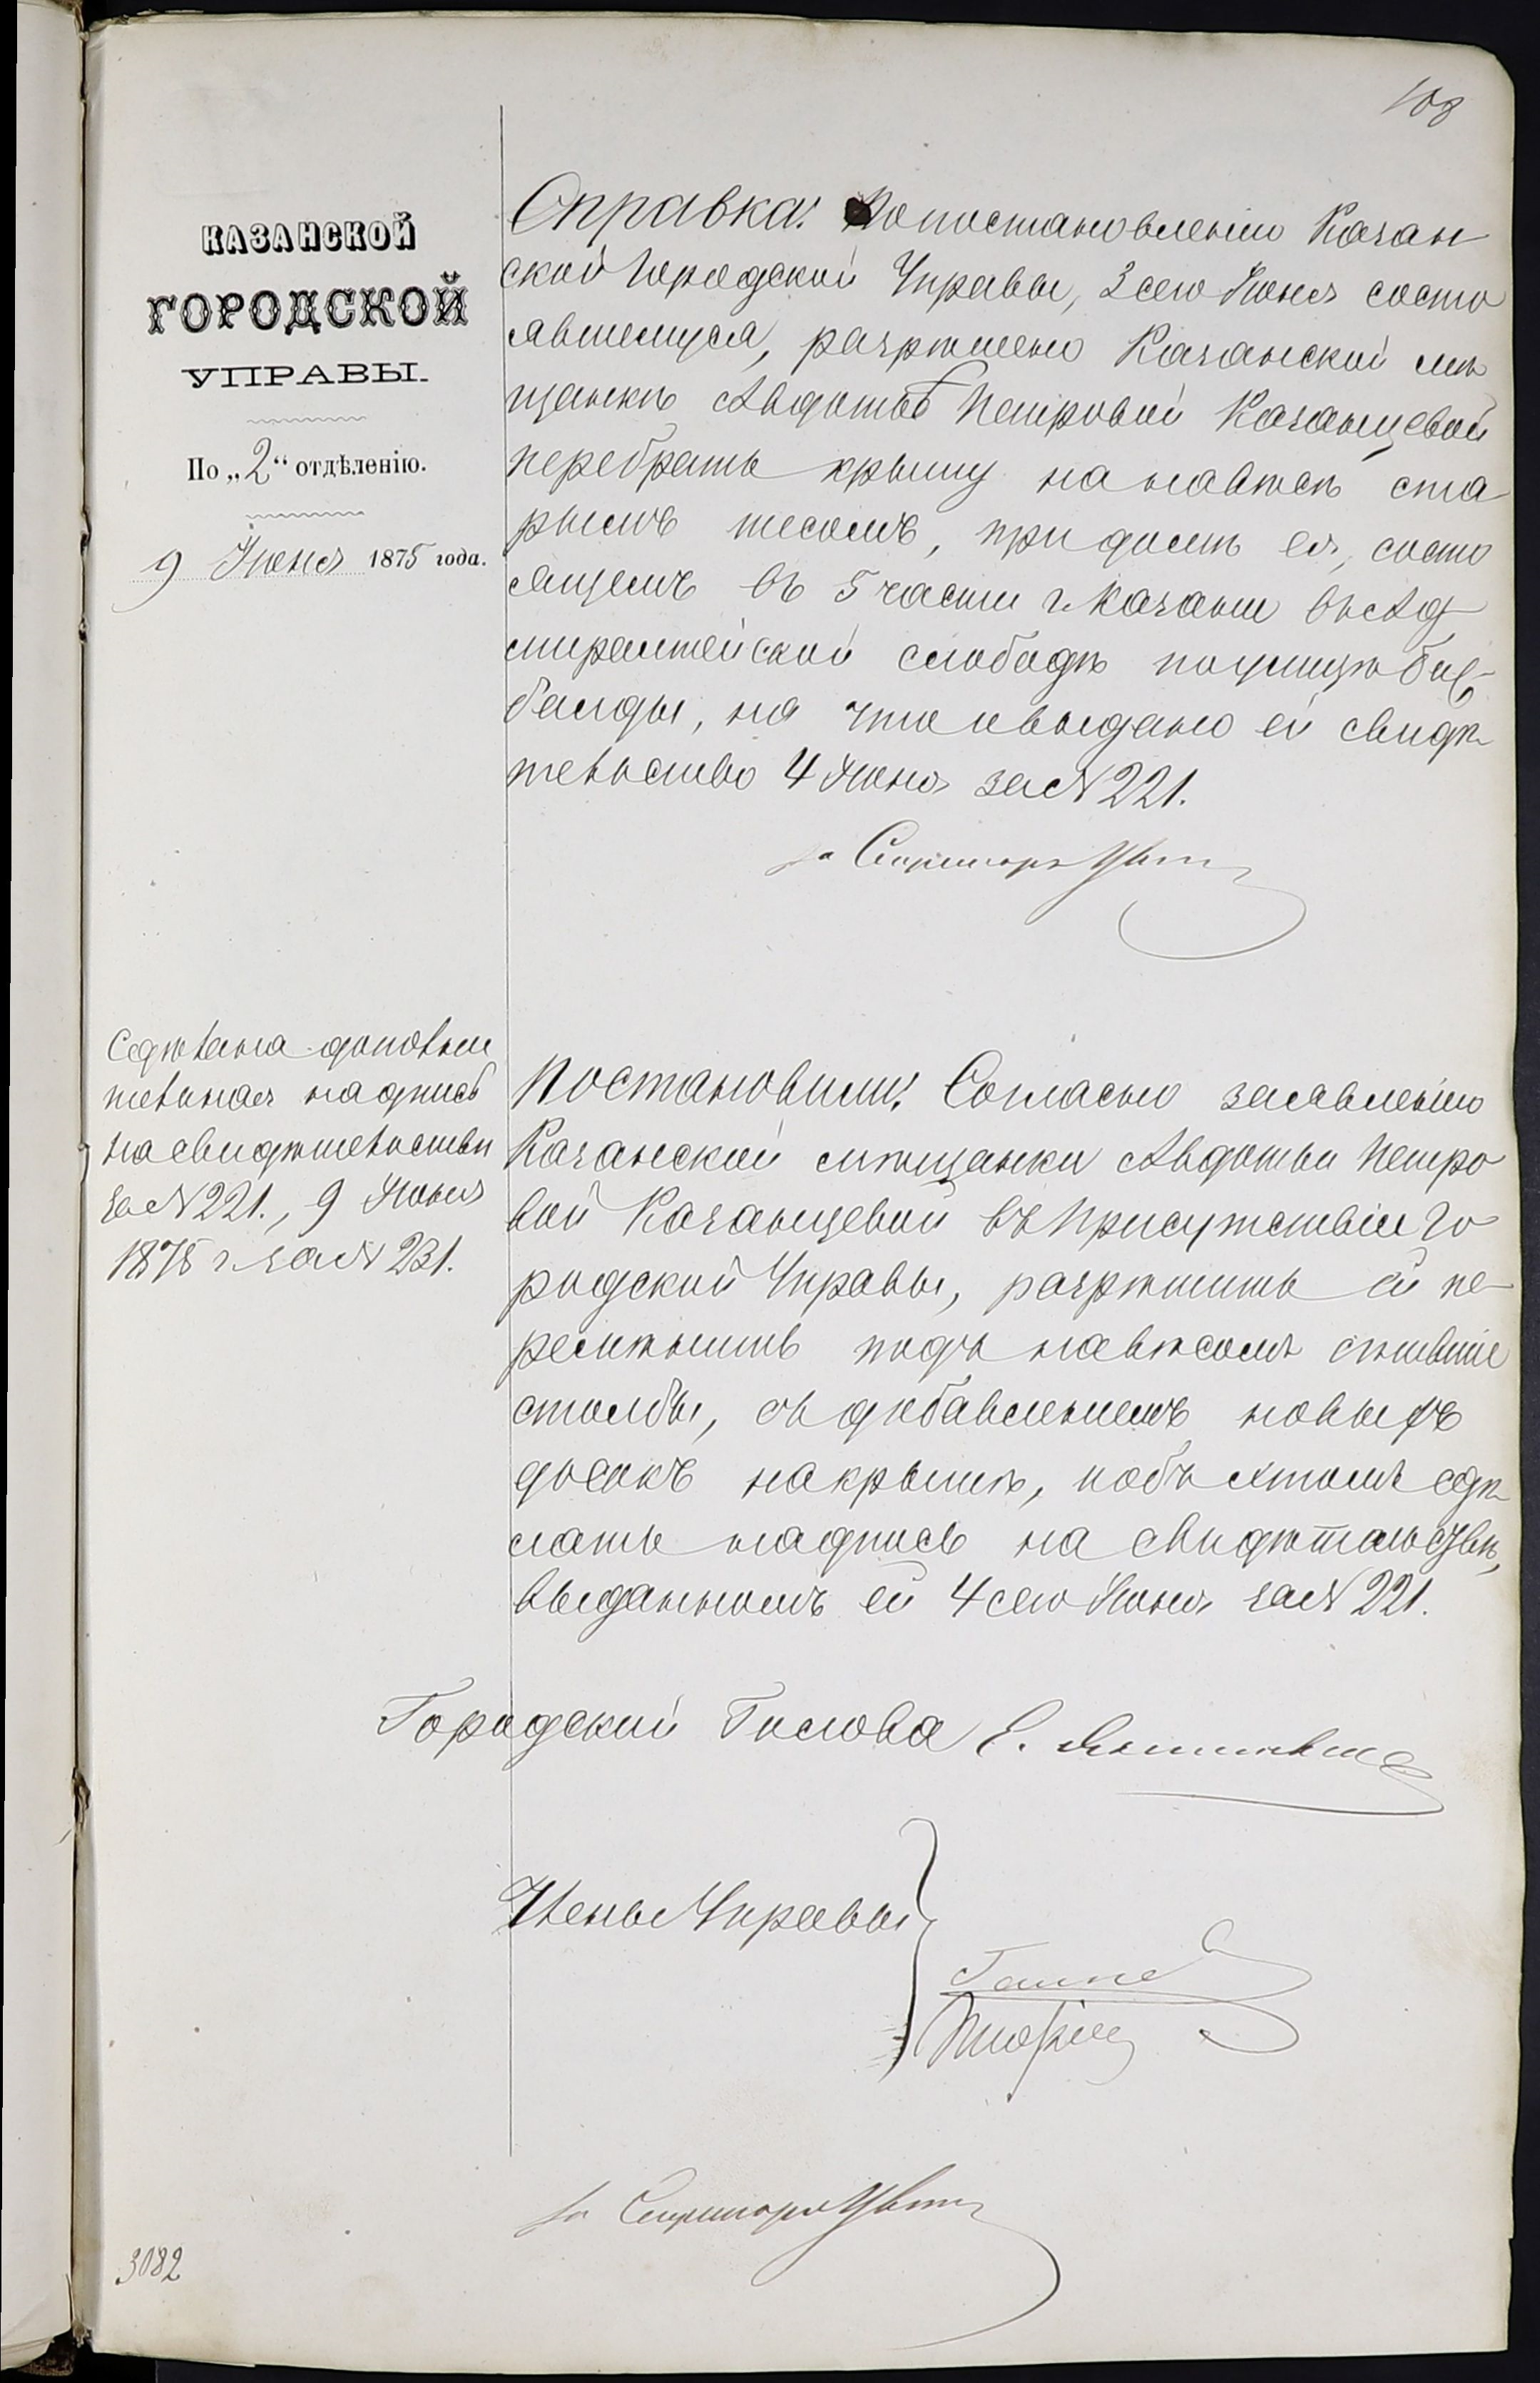 108
КАЗАНСКОЙ
ГОРОДСКОЙ
УПРАВЫ.
По „2“ отдѣленію.
9 Іюня 1875 года.
Справка: По постановленію Казан
ской Городской Управы, 3 сего Іюня состо
явшемуся, разрѣшено Казанской мѣ
щанкѣ Авдотьѣ Петровой Казанцевой
перебрать крышу на навѣсѣ ста
рымъ тесомъ, при домѣ ея, состо
ящемъ въ 5 части г. Казани въ Ад
миралтейской слободѣ по улицѣ Биш
балды, на что и выдано ей свидѣ
тельство 4 Іюня за № 221.
за Секретаря
Сдѣлана дополни
тельная надпись
на свидѣтельствѣ
за № 221., 9 Іюня
1875 г. за № 231.
Постановили: Согласно заявленію
Казанской мѣщанки Авдотьи Петро
вой Казанцевой въ присутствіи Го
родской Управы, разрѣшить ей пе
ремѣнить подъ навѣсомъ сгнившіе
столбы, съ добавленіемъ новыхъ
досокъ на крышѣ, и объ этомъ сдѣ
лать надпись на свидѣтельствѣ,
выданномъ ей 4 сего Іюня за № 221.
Городской Голова
Члены Управы
за Секретаря
3082